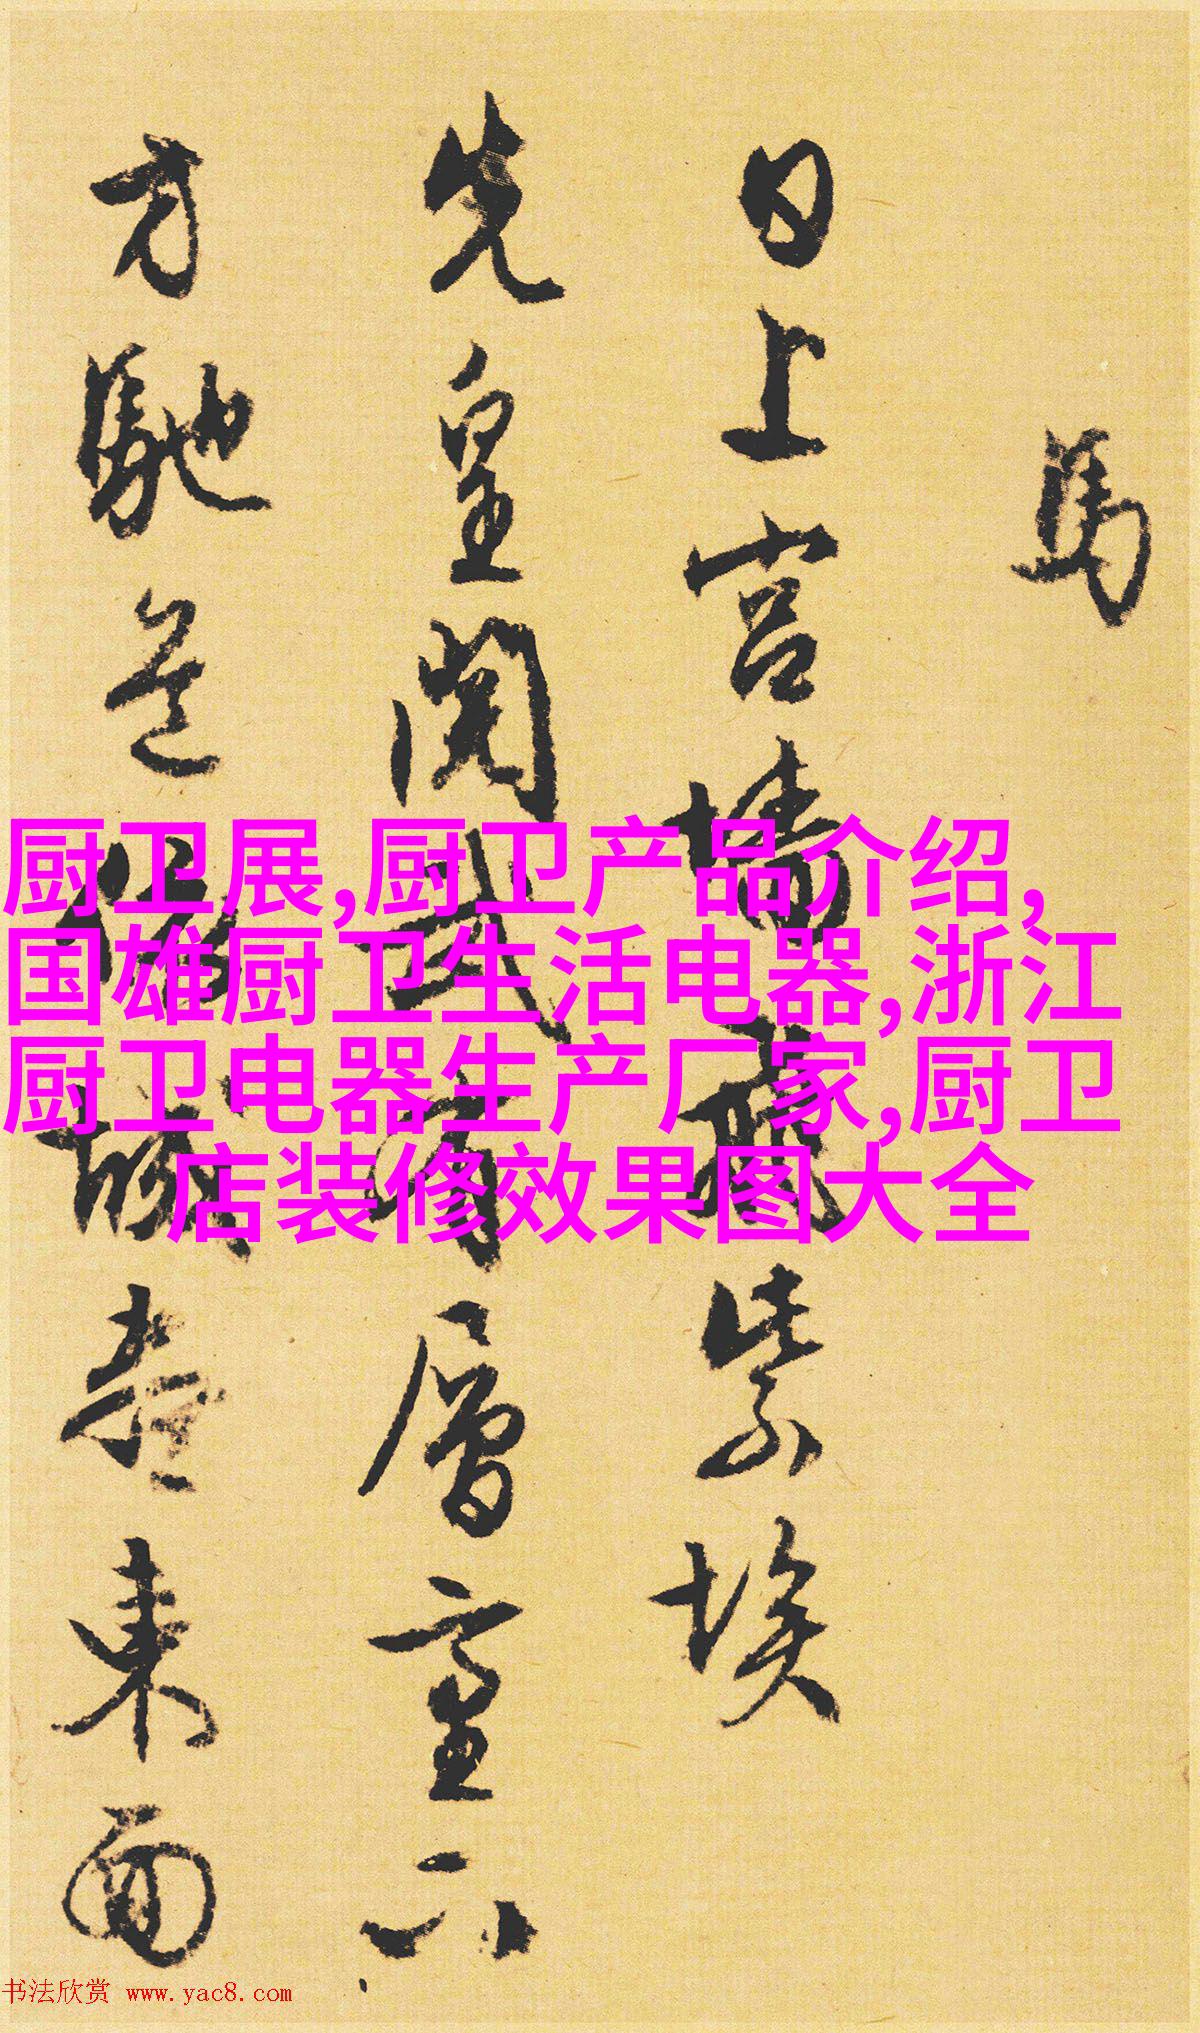 馬
日上宫墙藏紫埃
先皇閱武有層臺下
方馳道依城盡東面
厨卫展,厨卫产品介绍,
国雄厨卫生活电器,浙江
厨卫电器生产厂家,厨卫
店装修效果图大全
书法欣赏 www.yac8.com